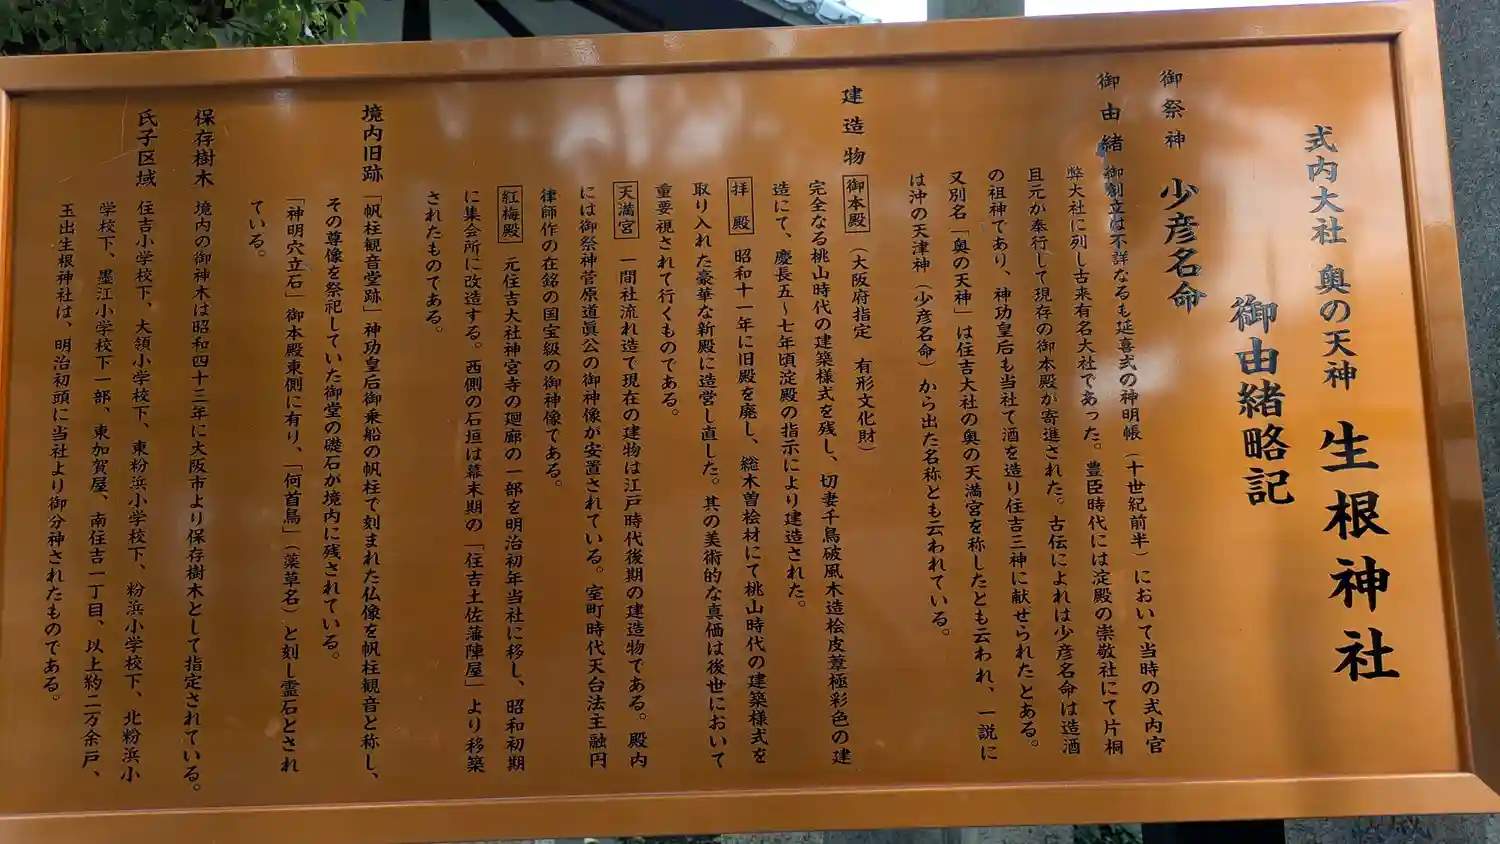 式内大社 奥の天神 生根神社
御由緒略記
御祭神 少彦名命
御由緒 御創立は不詳なるも延喜式の神明帳(十世紀前半)において当時の式内官
弊大社に列し古来有名大社であった。豊臣時代には淀殿の崇敬社にて片桐
且元が奉行して現存の御本殿が寄進された。古伝によれは少彦名命は造酒
の祖神であり、神功皇后も当社て酒を造り住吉三神に献せられたとある。
又別名「奥の天神」は住吉大社の奥の天満宮を称したとも云われ、一説に
は沖の天津神(少彦名命)から出た名称とも云われている。
建造物 御本殿 (大阪府指定 有形文化財)
完全なる桃山時代の建築様式を残し、切妻千鳥破風木造桧皮葺極彩色の建
造にて、慶長五~七年頃淀殿の指示により建造された。
拝殿 昭和十一年に旧殿を廃し、総木曽桧材にて桃山時代の建築様式を
取り入れた豪華な新殿に造営し直した。其の美術的な真価は後世において
重要視されて行くものである。
天満宮 一間社流れ造で現在の建物は江戸時代後期の建造物である。殿内
には御祭神菅原道眞公の御神像が安置されている。室町時代天台法主融円
律師作の在銘の国宝級の御神像である。
紅梅殿 元住吉大社神宮寺の廻廊の一部を明治初年当社に移し、昭和初期
に集会所に改造する。西側の石垣は幕末期の「住吉土佐藩陣屋」より移築
されたものである。
境内旧跡 「帆柱観音堂跡」神功皇后御乗船の帆柱で刻まれた仏像を帆柱観音と称し、
その尊像を祭祀していた御堂の礎石が境内に残されている。
「神明穴立石」御本殿東側に有り、「何首烏」(薬草名)と刻し霊石とされ
ている。
保存樹木 境内の御神木は昭和四十三年に大阪市より保存樹木として指定されている。
氏子区域 住吉小学校下、大領小学校下、東粉浜小学校下、粉浜小学校下、北粉浜小
学校下、墨江小学校下一部、東加賀屋、南住吉一丁目、以上約二万余戸、
玉出生根神社は、明治初頭に当社より御分神されたものである。